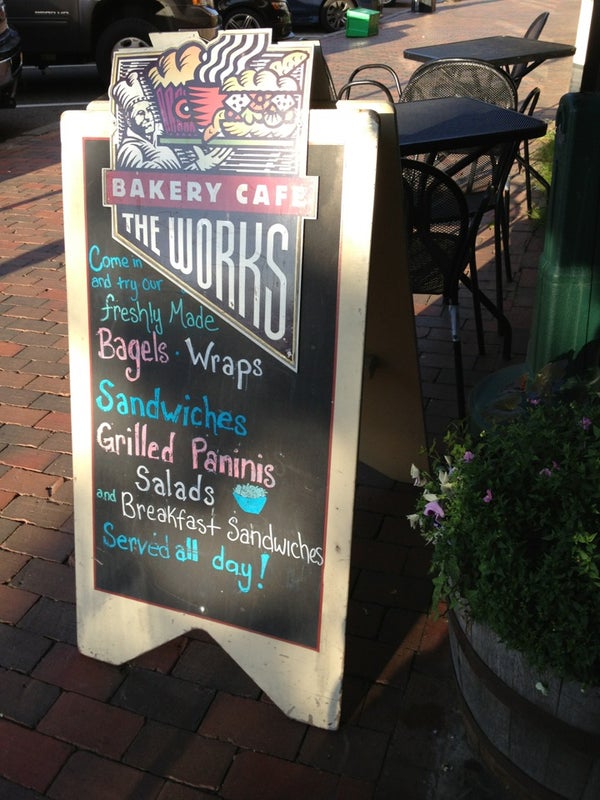 BAKERY CAFE
THE WORKS
Come in
and try our
freshly Made
Bagels · Wraps
Sandwiches
Grilled Paninis
Salads
and Breakfast Sandwiches
Served all day!